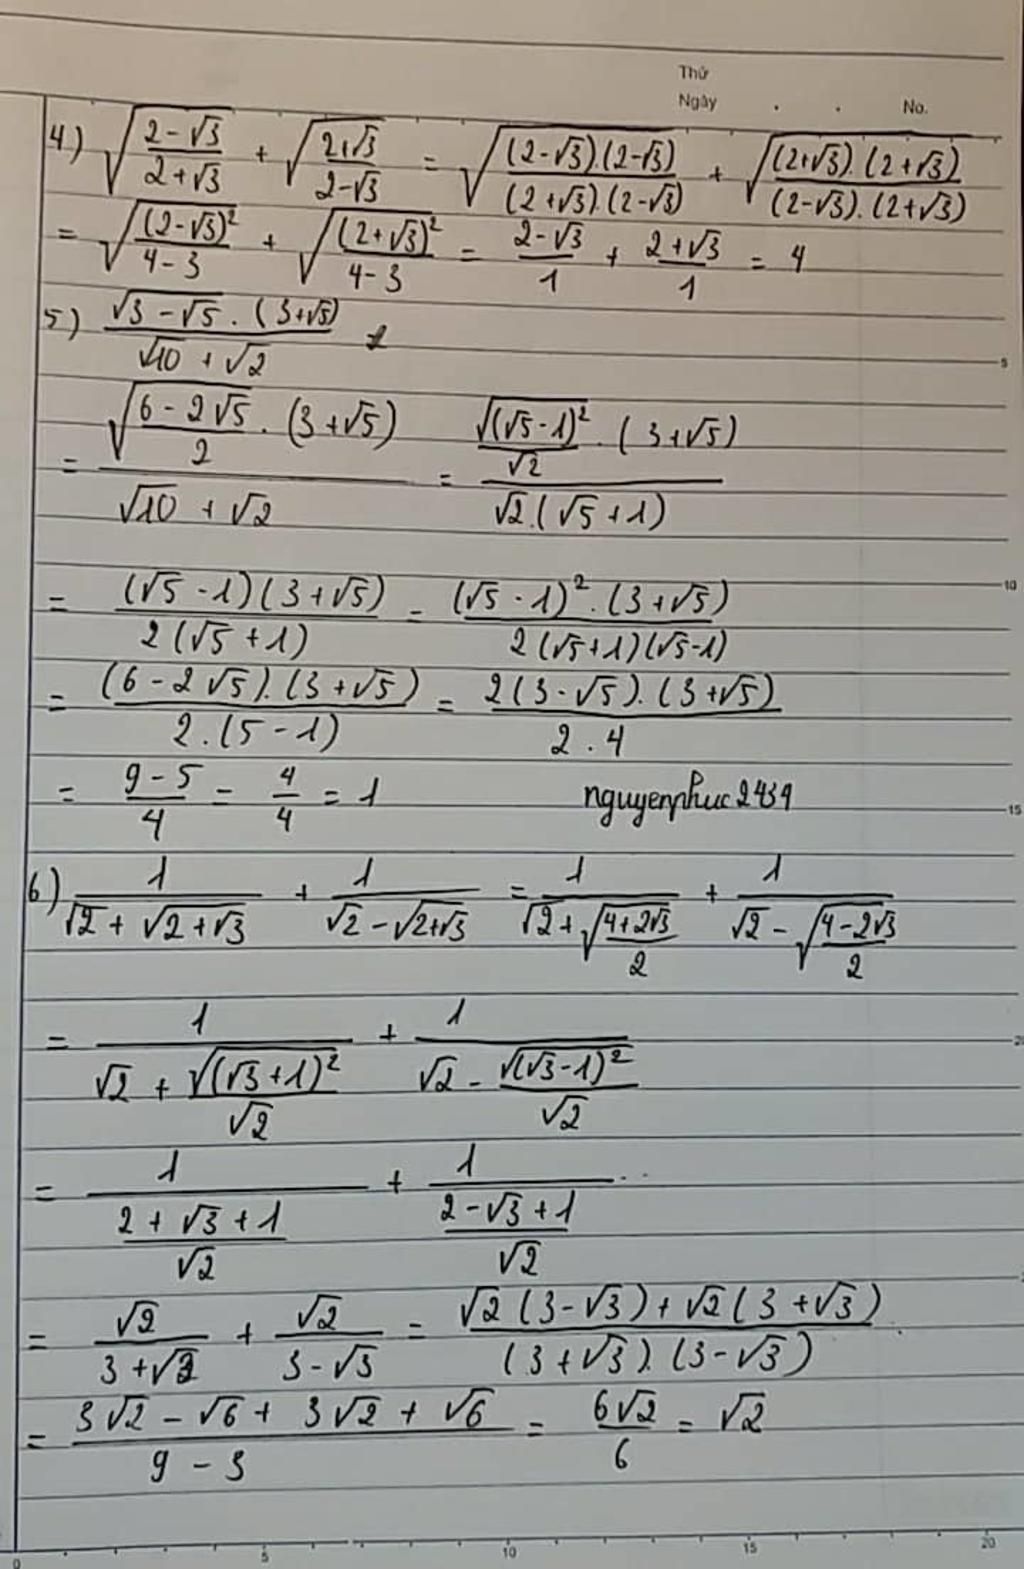 Thứ
Ngày . . No.
4) √((2-√3)/(2+√3)) + √((2+√3)/(2-√3)) = √(((2-√3).(2-√3))/((2+√3).(2-√3))) + √(((2+√3).(2+√3))/((2-√3).(2+√3)))
= √((2-√3)²/(4-3)) + √((2+√3)²/(4-3)) = (2-√3)/1 + (2+√3)/1 = 4
5) (√(3-√5) . (3+√5))/(√10 + √2)
= (√((6-2√5)/2) . (3+√5))/(√10 + √2) = (√((√5-1)²)/√2 . (3+√5))/(√2.(√5+1))
= ((√5-1)(3+√5))/(2(√5+1)) = ((√5-1)².(3+√5))/(2(√5+1)(√5-1))
= ((6-2√5).(3+√5))/(2.(5-1)) = (2(3-√5).(3+√5))/(2.4)
= (9-5)/4 = 4/4 = 1 nguyenphuc2439
6) 1/(√2+√(2+√3)) + 1/(√2-√(2+√3)) = 1/(√2+√((4+2√3)/2)) + 1/(√2-√((4-2√3)/2))
= 1/(√2 + √((√3+1)²)/√2) + 1/(√2 - √((√3-1)²)/√2)
= 1/((2+√3+1)/√2) + 1/((2-√3+1)/√2)
= √2/(3+√3) + √2/(3-√3) = (√2(3-√3)+√2(3+√3))/((3+√3).(3-√3))
= (3√2-√6+3√2+√6)/(9-3) = 6√2/6 = √2
5
10
15
0 5 10 15 20